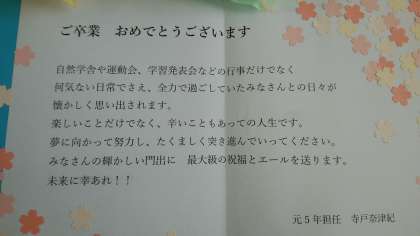 ご卒業　おめでとうございます
自然学舎や運動会、学習発表会などの行事だけでなく
何気ない日常でさえ、全力で過ごしていたみなさんとの日々が
懐かしく思い出されます。
楽しいことだけでなく、辛いこともあっての人生です。
夢に向かって努力し、たくましく突き進んでいってください。
みなさんの輝かしい門出に　最大級の祝福とエールを送ります。
未来に幸あれ！！
元５年担任　寺戸奈津紀